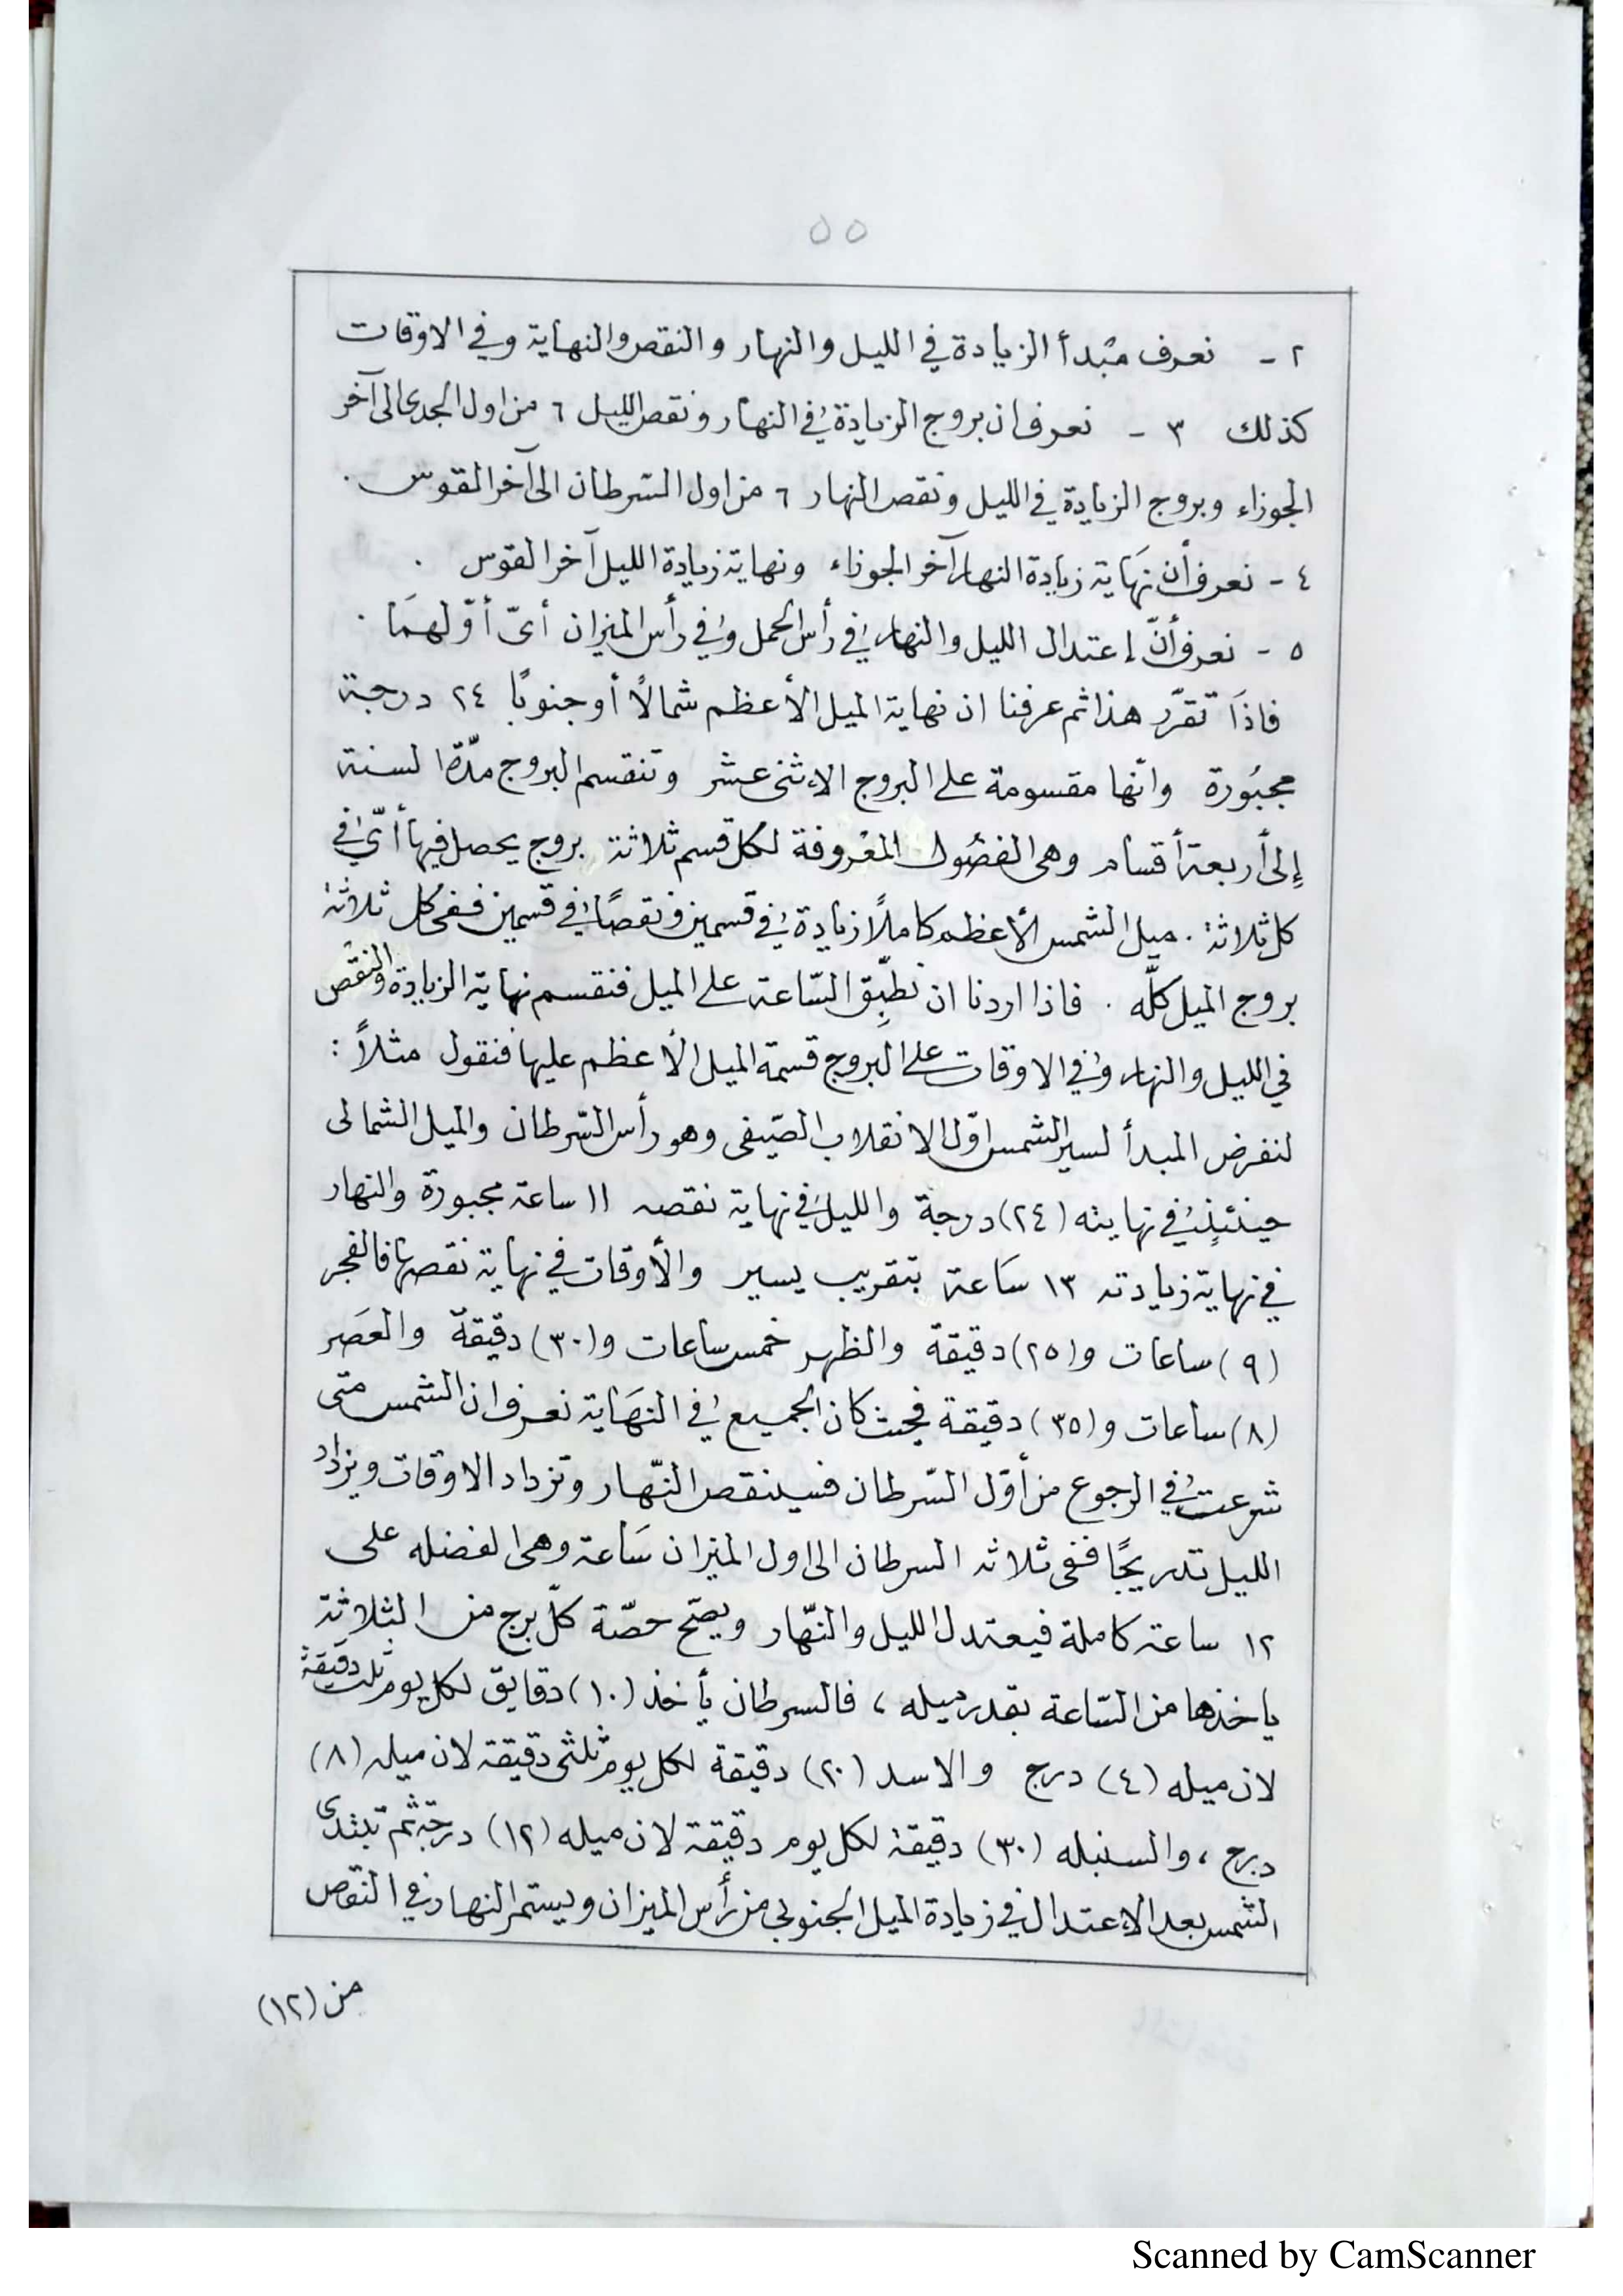 ٥٥
٢ - نعرف مبدأ الزيادة في الليل والنهار والنقص والنهاية وفي الاوقات
كذلك ٣ - نعرف ان بروج الزيادة في النهار ونقص الليل ٦ من اول الجدى الى آخر
الجوزاء وبروج الزيادة في الليل ونقص النهار ٦ من اول السّرطان الى آخر القوس .
٤ - نعرف أن نهَاية زيادة النهار آخر الجوزاء ونهاية زيادة الليل آخر القوس .
٥ - نعرف أنّ إعتدال الليل والنهار في رأس الحمل وفي رأس الميزان أىّ أوّلهمَا .
فاذَا تقرّر هذا ثم عرفنا ان نهاية الميل الأعظم شمالًا أو جنوبًا ٢٤ درجة
مجبُورة وانّها مقسومة على البروج الاءثنى عشر وتنقسم البروج مدّة السنة
إلى أربعة أقسام وهى الفصُول المعْروفة لكل قسم ثلاثة بروج يحصل فيها أىّ في
كل ثلاثة . ميل الشمس الأعظم كاملًا زيادة في قسمين ونقصًا في قسمين ففى كل ثلاثة
بروج الميل كلّه . فاذا اردنا ان نطبِّق السّاعة على الميل فنقسم نهاية الزيادة والنقص
في الليل والنهار وفي الاوقات على البروج قسمة الميل الأعظم عليها فنقول مثلاً :
لنفرض المبدأ لسير الشمس اوّل الانقلاب الصّيفى وهو رأس السّرطان والميل الشمالى
حينئذٍ في نهايته (٢٤) درجة والليل في نهاية نقصه ١١ ساعة مجبورة والنهار
في نهاية زيادته ١٣ سَاعة بتقريب يسير والأوقات في نهاية نقصها فالفجر
(٩) ساعات و(٢٥) دقيقة والظهر خمس ساعات و(٣٠) دقيقة والعصَر
(٨) ساعات و(٣٥) دقيقة فحيث كان الجميع في النهَاية نعرف ان الشمس متى
شرعت في الرجوع من أوّل السّرطان فسينقص النّهار وتزداد الاوقات ويزداد
الليل تدريجًا ففى ثلاثة السرطان الى اول الميزان سَاعة وهى الفضله على
١٢ ساعة كاملة فيعتدل الليل والنّهار ويصّح حصّة كلّ برج من الثلاثة
ياخذها من السّاعة بقدر ميله ، فالسرطان يأخذ (١٠) دقايق لكل يوم ثلث دقيقة
لان ميله (٤) درج والاسد (٢٠) دقيقة لكل يوم ثلثى دقيقة لان ميله (٨)
درج ، والسنبله (٣٠) دقيقة لكل يوم دقيقة لان ميله (١٢) درجة ثم تبتدى
الشمس بعد الاءعتدال في زيادة الميل الجنوبى من رأس الميزان ويستمر النهار في النقص
من (١٢)
Scanned by CamScanner